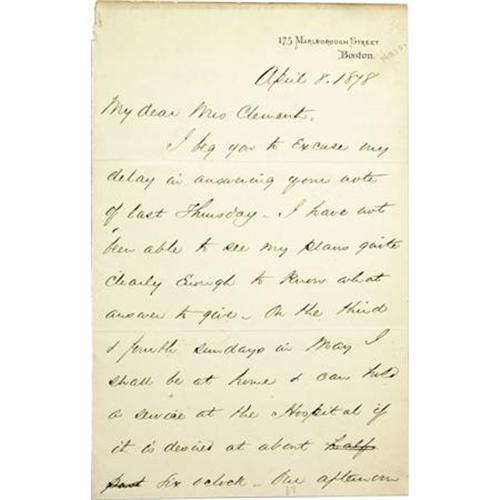 175 Marlborough Street.
Boston.
April 8. 1878
My dear Mrs Clement,
I beg you to excuse my
delay in answering your note
of last Thursday - I have not
been able to see my plans quite
clearly enough to know what
answer to give - On the third
& fourth sundays in May I
shall be at home & can hold
a service at the Hospital if
it is desired at about half
past six oclock - Our afternoon